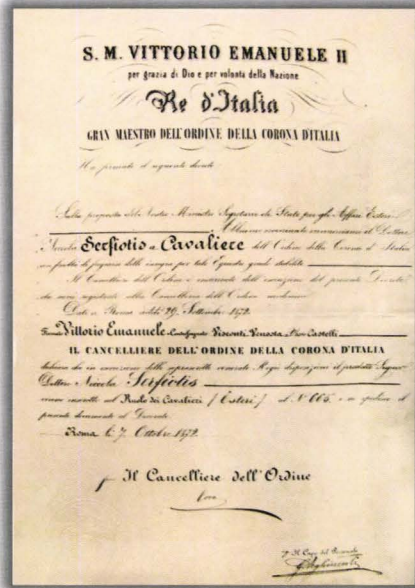 S. M. VITTORIO EMANUELE II
per grazia di Dio e per volontà della Nazione
Re d'Italia
GRAN MAESTRO DELL'ORDINE DELLA CORONA D'ITALIA
Ha firmato il seguente decreto
Sulla proposta del Nostro Ministro Segretario di Stato per gli Affari Esteri
Abbiamo nominato e nominiamo il Dottore
Nicola Serfiotis a Cavaliere dell'Ordine della Corona d'Italia
con facoltà di fregiarsi delle insegne per tale Equestre grado stabilite
Il Cancelliere dell'Ordine è incaricato dell'esecuzione del presente Decreto
che sarà registrato alla Cancelleria dell'Ordine medesimo
Dato a Roma addì 29 Settembre 1872
Firmato Vittorio Emanuele Contrassegnato Visconti Venosta
IL CANCELLIERE DELL'ORDINE DELLA CORONA D'ITALIA
dichiara che in esecuzione delle Regie disposizioni il predetto Signor
Dottor Nicola Serfiotis
venne inscritto nel Ruolo dei Cavalieri (Esteri) al N° 665, e ne spedisce il
presente documento al Decorato
Roma 7 Ottobre 1872
Il Cancelliere dell'Ordine